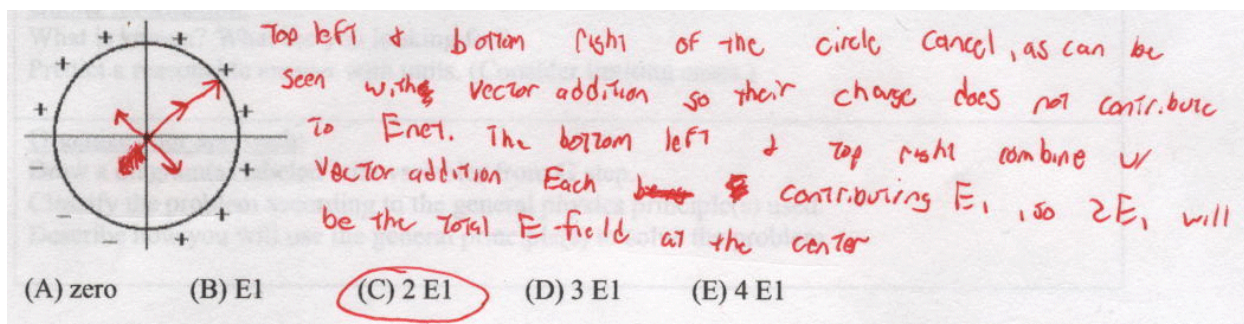 Top left & bottom right of the circle cancel, as can be
seen with vector addition so their charge does not contribute
to Enet. The bottom left & top right combine w/
vector addition Each contributing E₁, so 2E₁ will
be the total E-field at the center
+ + + + + + + + + +
- - -
(A) zero (B) E1 (C) 2 E1 (D) 3 E1 (E) 4 E1